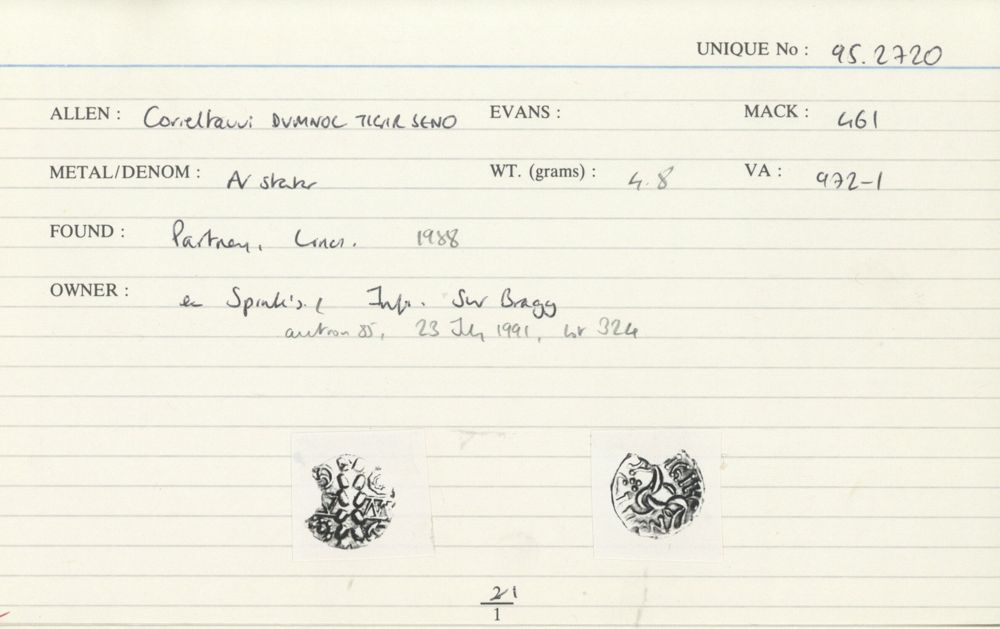 UNIQUE No : 95.2720
ALLEN : Corieltauvi DVMNOC TIGIR SENO EVANS : MACK : 461
METAL/DENOM : AV stater WT. (grams) : 4.8 VA : 972-1
FOUND : Partney, Lincs. 1988
OWNER : ex Spink's. Info. Sur Bragg
auction 85, 23 July 1991, lot 324
21
1